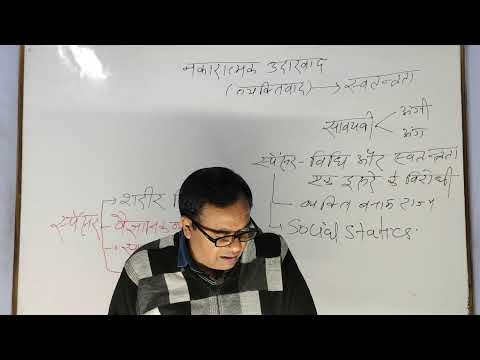 नकारात्मक उदारवाद
(व्यक्तिवाद) → स्वतन्त्रता
सावयवी < अंगी
अंग
स्पेंसर - विधि और स्वतन्त्रता
एक दूसरे के विरोधी
व्यक्ति बनाम राज्य
Social Statics.
स्पेंसर
शरीर